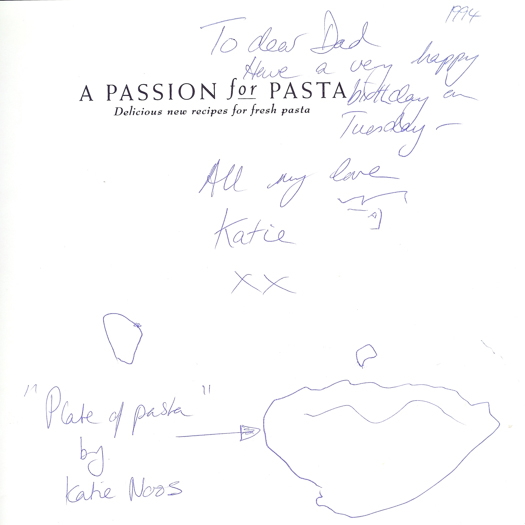 1994
To dear Dad
Have a very happy
birthday on
Tuesday –
A PASSION for PASTA
Delicious new recipes for fresh pasta
All my love
Katie
XX
"Plate of pasta"
by
Katie Noos